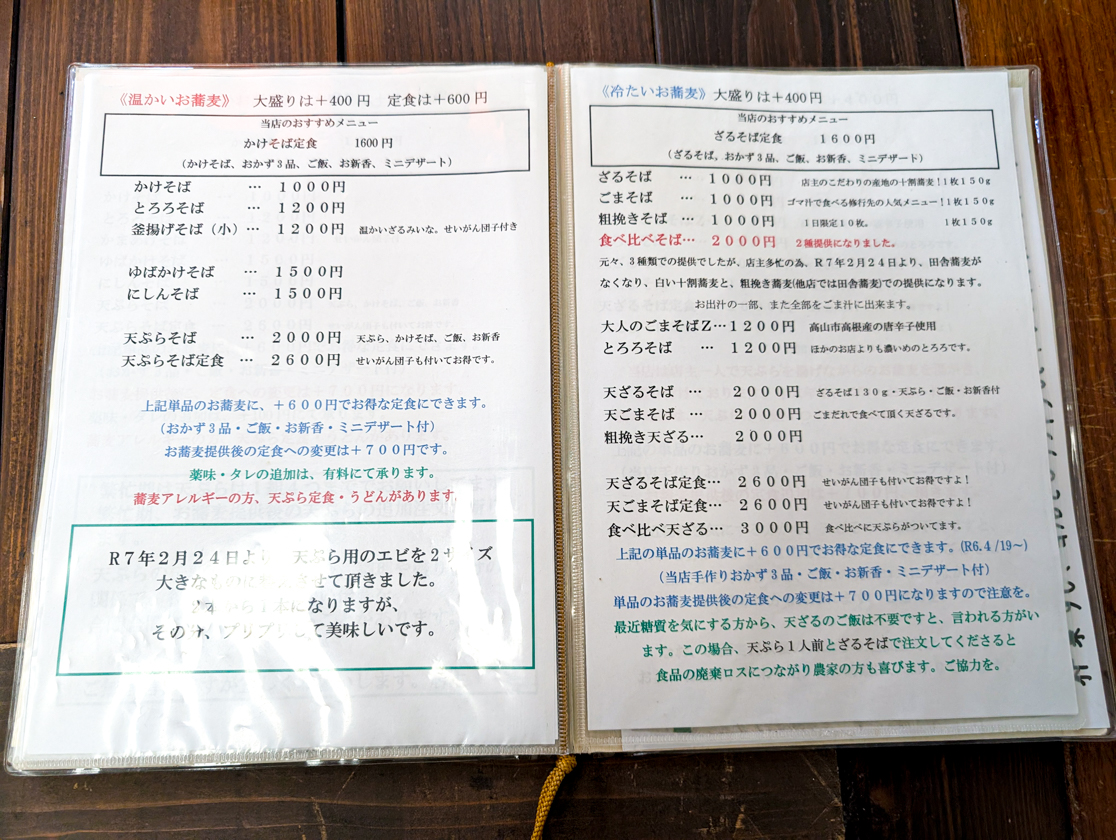 《温かいお蕎麦》 大盛りは＋400円 定食は＋600円
当店のおすすめメニュー
かけそば定食 1600円
（かけそば、おかず3品、ご飯、お新香、ミニデザート）
かけそば … 1000円
とろろそば … 1200円
釜揚げそば（小）… 1200円 温かいざるみいな。せいがん団子付き
ゆばかけそば … 1500円
にしんそば … 1500円
天ぷらそば … 2000円 天ぷら、かけそば、ご飯、お新香
天ぷらそば定食 … 2600円 せいがん団子も付いてお得です。
上記単品のお蕎麦に、＋600円でお得な定食にできます。
（おかず3品・ご飯・お新香・ミニデザート付）
お蕎麦提供後の変更は＋700円です。
薬味・タレの追加は、有料にて承ります。
蕎麦アレルギーの方、天ぷら定食・うどんがあります。
R7年2月24日より 天ぷら用のエビを2サイズ
大きなものに させて頂きました。
2本から1本になりますが、
その分、プリプリして美味しいです。
《冷たいお蕎麦》大盛りは＋400円
当店のおすすめメニュー
ざるそば定食 1600円
（ざるそば，おかず3品、ご飯、お新香、ミニデザート）
ざるそば … 1000円 店主のこだわりの産地の十割蕎麦！1枚150g
ごまそば … 1000円 ゴマ汁で食べる修行先の人気メニュー！1枚150g
粗挽きそば … 1000円 1日限定10枚。 1枚150g
食べ比べそば… 2000円 2種提供になりました。
元々、3種類での提供でしたが、店主多忙の為、R7年2月24日より、田舎蕎麦が
なくなり、白い十割蕎麦と、粗挽き蕎麦(他店では田舎蕎麦)での提供になります。
お出汁の一部、また全部をごま汁に出来ます。
大人のごまそばZ…1200円 高山市高根産の唐辛子使用
とろろそば … 1200円 ほかのお店よりも濃いめのとろろです。
天ざるそば … 2000円 ざるそば130g・天ぷら・ご飯・お新香付
天ごまそば … 2000円 ごまだれで食べて頂く天ざるです。
粗挽き天ざる… 2000円
天ざるそば定食… 2600円 せいがん団子も付いてお得ですよ！
天ごまそば定食… 2600円 せいがん団子も付いてお得ですよ！
食べ比べ天ざる… 3000円 食べ比べに天ぷらがついてます。
上記の単品のお蕎麦に＋600円でお得な定食にできます。(R6.4/19～)
（当店手作りおかず3品・ご飯・お新香・ミニデザート付）
単品のお蕎麦提供後の定食への変更は＋700円になりますので注意を。
最近糖質を気にする方から、天ざるのご飯は不要ですと、言われる方がい
ます。この場合、天ぷら1人前とざるそばで注文してくださると
食品の廃棄ロスにつながり農家の方も喜びます。ご協力を。